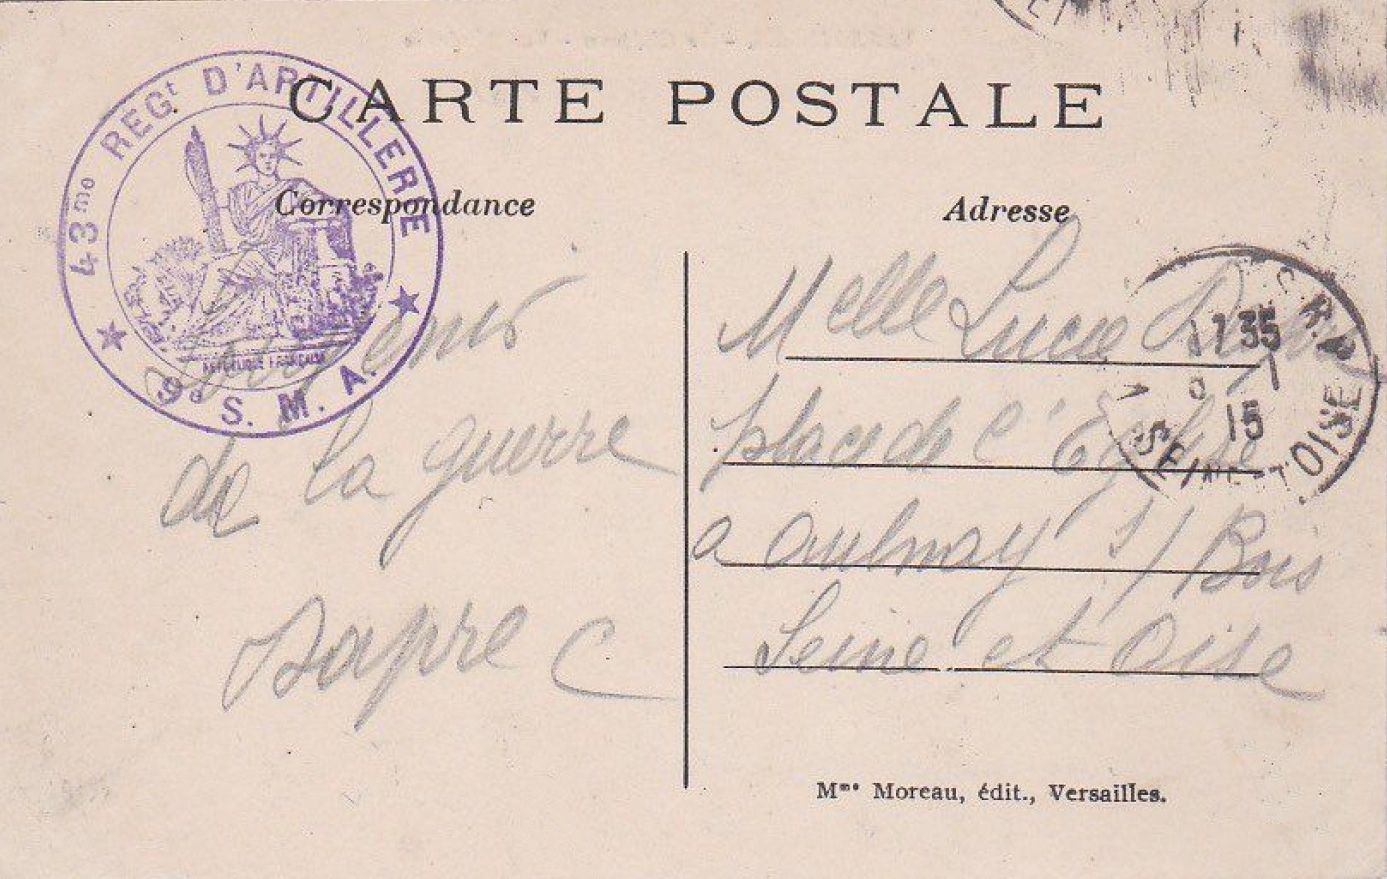 CARTE POSTALE
43me REGt D'ARTILLERIE
REPUBLIQUE FRANCAISE
9e S. M. A.
Correspondance
Souvenir
de la guerre
Dapre C
Adresse
Melle Lucie
place de l'Eglise
a aulnay s/ Bois
Seine et Oise
17 35
1
15
SEINE-ET-OISE
Mme Moreau, édit., Versailles.